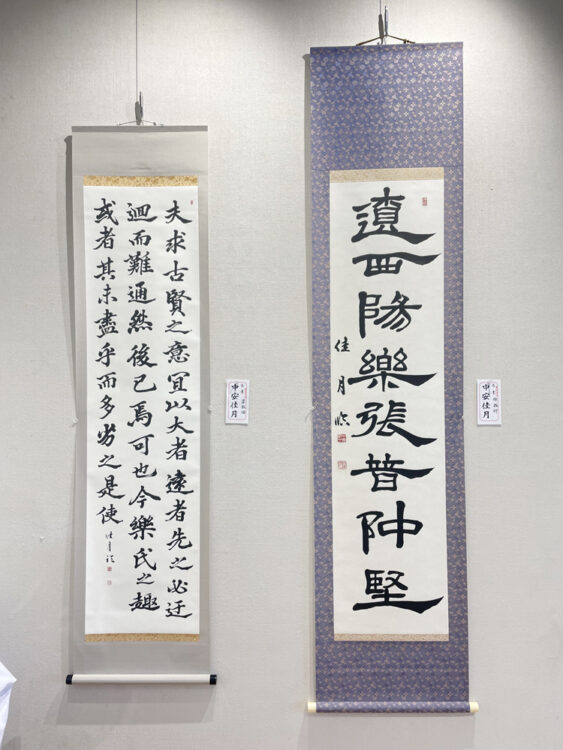 遼西陽樂張普仲堅
佳月臨
夫求古賢之意冝以大者遠者先之必迂
迴而難通然後已焉可也今樂氏之趣
或者其未盡乎而多劣之是使
佳月臨
中安佳月
中安佳月